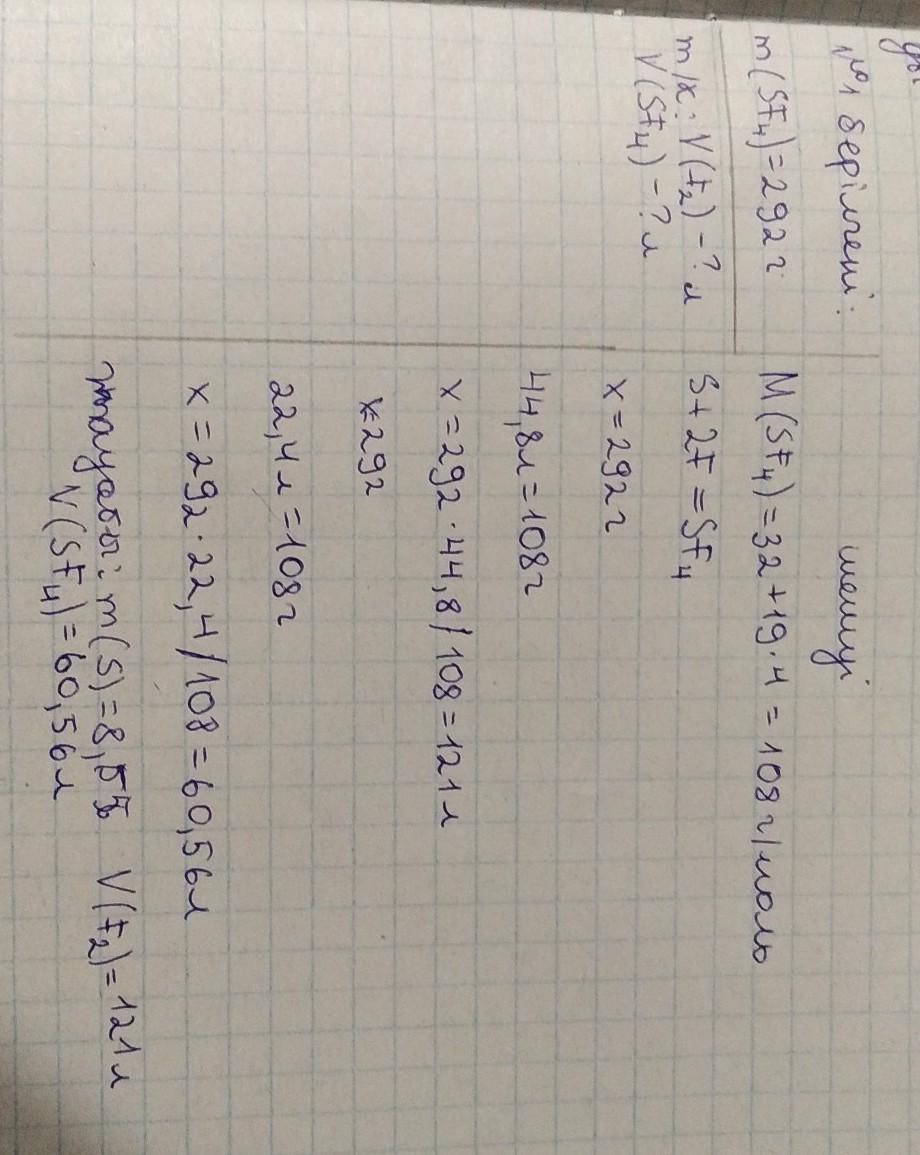 №1 берілгені: шешуі
m(SF₄)=292 г
m/к: V(F₂)-? л
V(SF₄)-? л
M(SF₄)=32+19·4=108 г/моль
S+2F=SF₄
x=292 г
44,8л=108г
x=292·44,8/108=121 л
x=292
22,4 л=108 г
x=292·22,4/108=60,56л
жауабы: m(S)=8, V(F₂)=121 л
V(SF₄)=60,56л